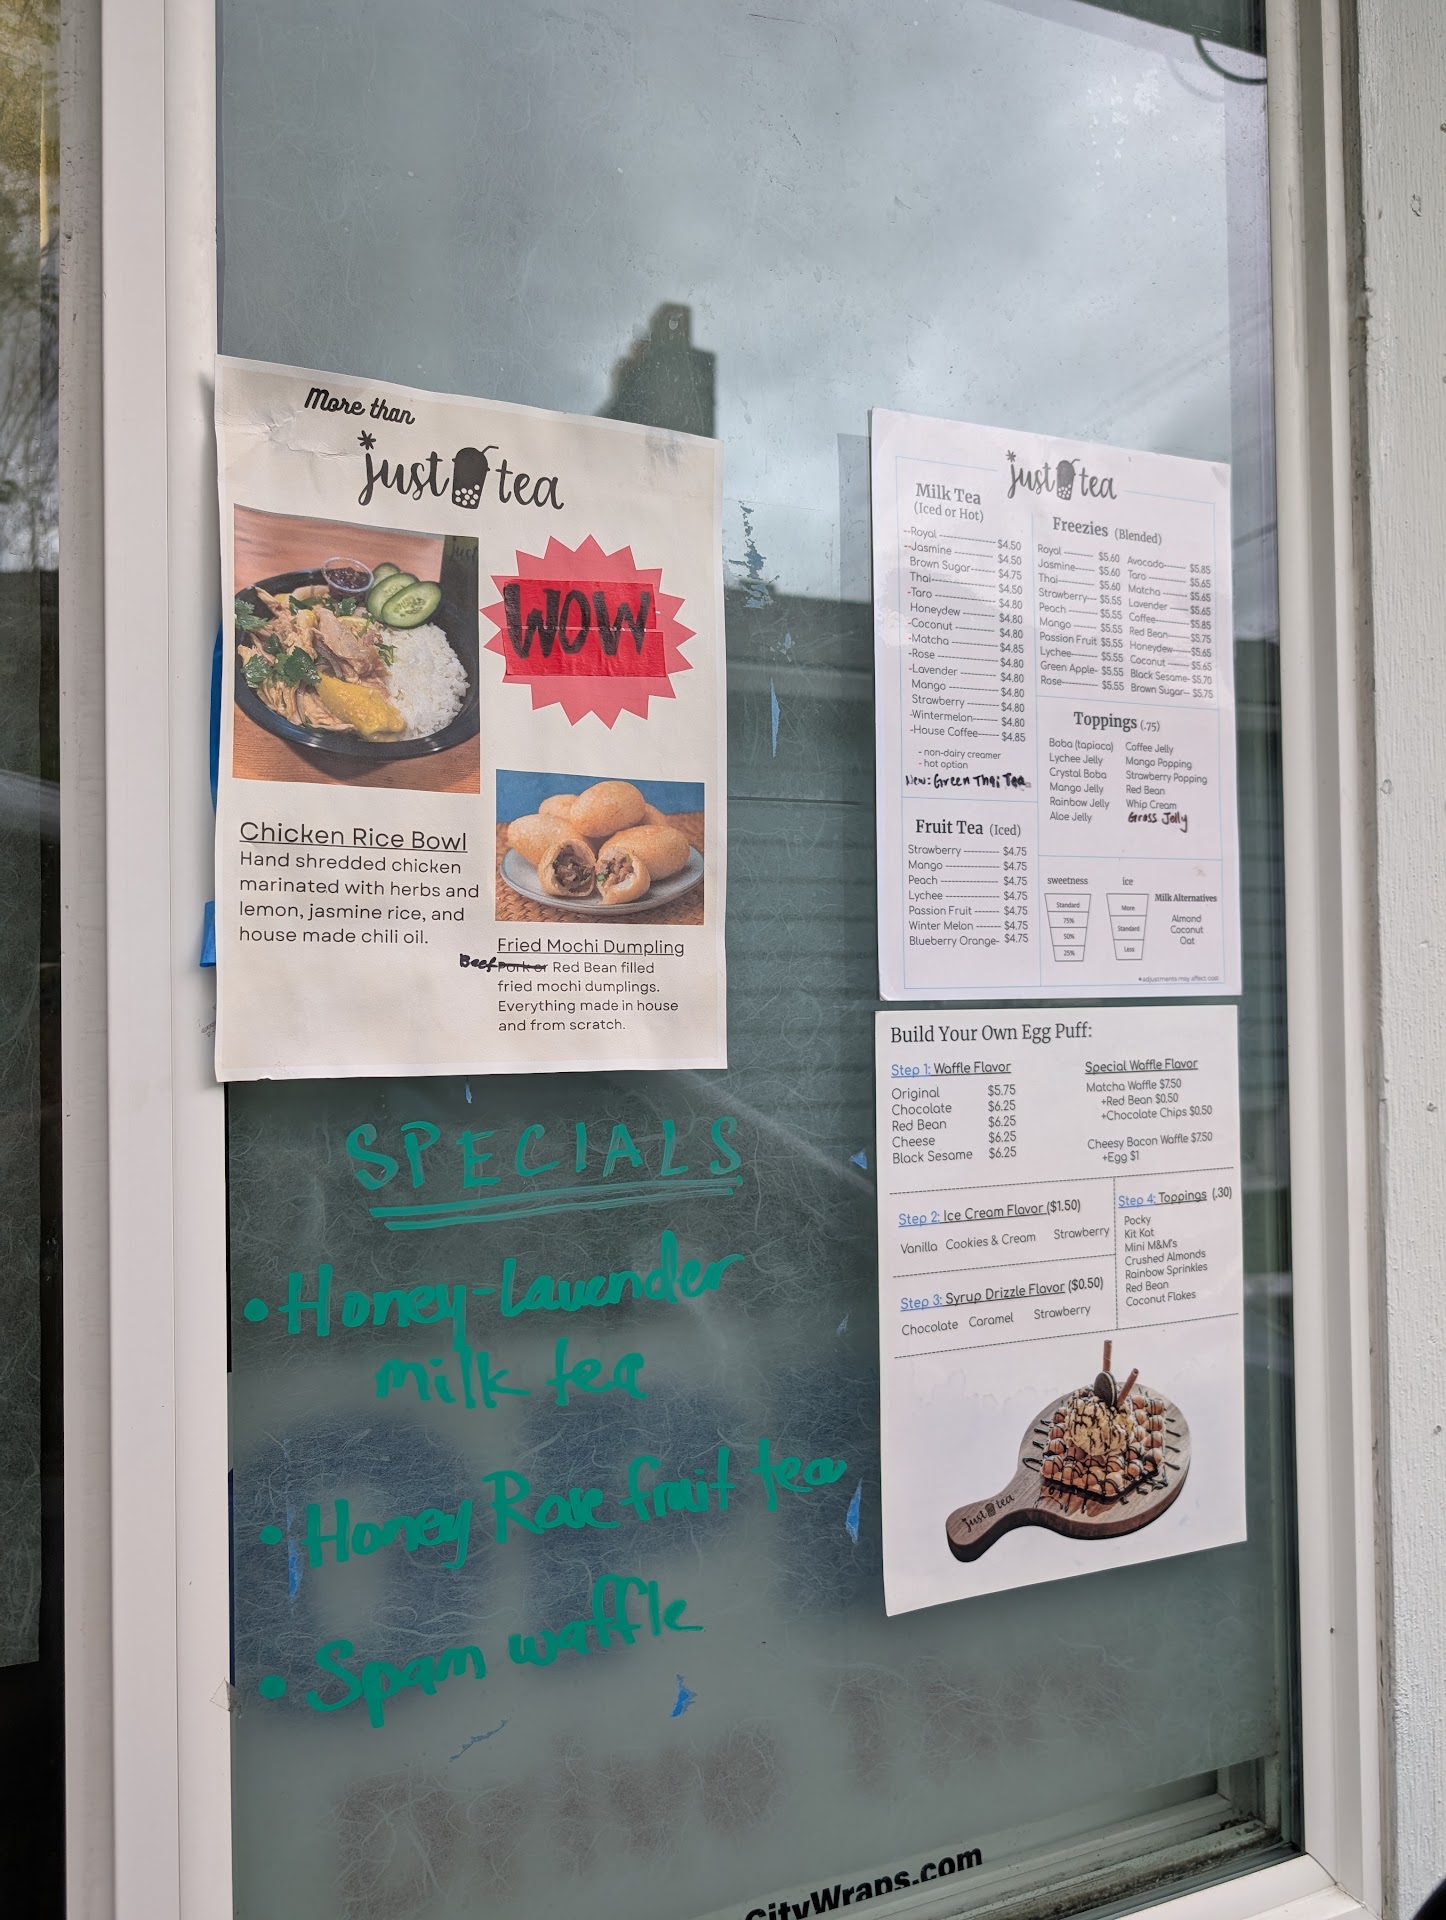 More than
*just tea
WOW
Chicken Rice Bowl
Hand shredded chicken
marinated with herbs and
lemon, jasmine rice, and
house made chili oil.
Fried Mochi Dumpling
Beef Pork or Red Bean filled
fried mochi dumplings.
Everything made in house
and from scratch.
SPECIALS
• Honey-Lavender
milk tea
• Honey Rose fruit tea
• Spam waffle
*just tea
Milk Tea
(Iced or Hot)
-Royal $4.50
-Jasmine $4.50
Brown Sugar $4.75
Thai $4.50
-Taro $4.80
Honeydew $4.80
-Coconut $4.80
-Matcha $4.85
-Rose $4.80
-Lavender $4.80
Mango $4.80
Strawberry $4.80
-Wintermelon $4.80
-House Coffee $4.85
- non-dairy creamer
- hot option
New: Green Thai Tea
Fruit Tea (Iced)
Strawberry $4.75
Mango $4.75
Peach $4.75
Lychee $4.75
Passion Fruit $4.75
Winter Melon $4.75
Blueberry Orange- $4.75
Freezies (Blended)
Royal $5.60
Jasmine $5.60
Thai $5.60
Strawberry $5.55
Peach $5.55
Mango $5.55
Passion Fruit $5.55
Lychee $5.55
Green Apple- $5.55
Rose $5.55
Avocado $5.85
Taro $5.65
Matcha $5.65
Lavender $5.65
Coffee $5.85
Red Bean $5.75
Honeydew $5.65
Coconut $5.65
Black Sesame- $5.70
Brown Sugar-- $5.75
Toppings (.75)
Boba (tapioca)
Lychee Jelly
Crystal Boba
Mango Jelly
Rainbow Jelly
Aloe Jelly
Coffee Jelly
Mango Popping
Strawberry Popping
Red Bean
Whip Cream
Grass Jelly
sweetness
Standard
75%
50%
25%
ice
More
Standard
Less
Milk Alternatives
Almond
Coconut
Oat
*adjustments may affect cost
Build Your Own Egg Puff:
Step 1: Waffle Flavor
Original $5.75
Chocolate $6.25
Red Bean $6.25
Cheese $6.25
Black Sesame $6.25
Special Waffle Flavor
Matcha Waffle $7.50
+Red Bean $0.50
+Chocolate Chips $0.50
Cheesy Bacon Waffle $7.50
+Egg $1
Step 2: Ice Cream Flavor ($1.50)
Vanilla Cookies & Cream Strawberry
Step 3: Syrup Drizzle Flavor ($0.50)
Chocolate Caramel Strawberry
Step 4: Toppings (.30)
Pocky
Kit Kat
Mini M&M's
Crushed Almonds
Rainbow Sprinkles
Red Bean
Coconut Flakes
just tea
CityWraps.com